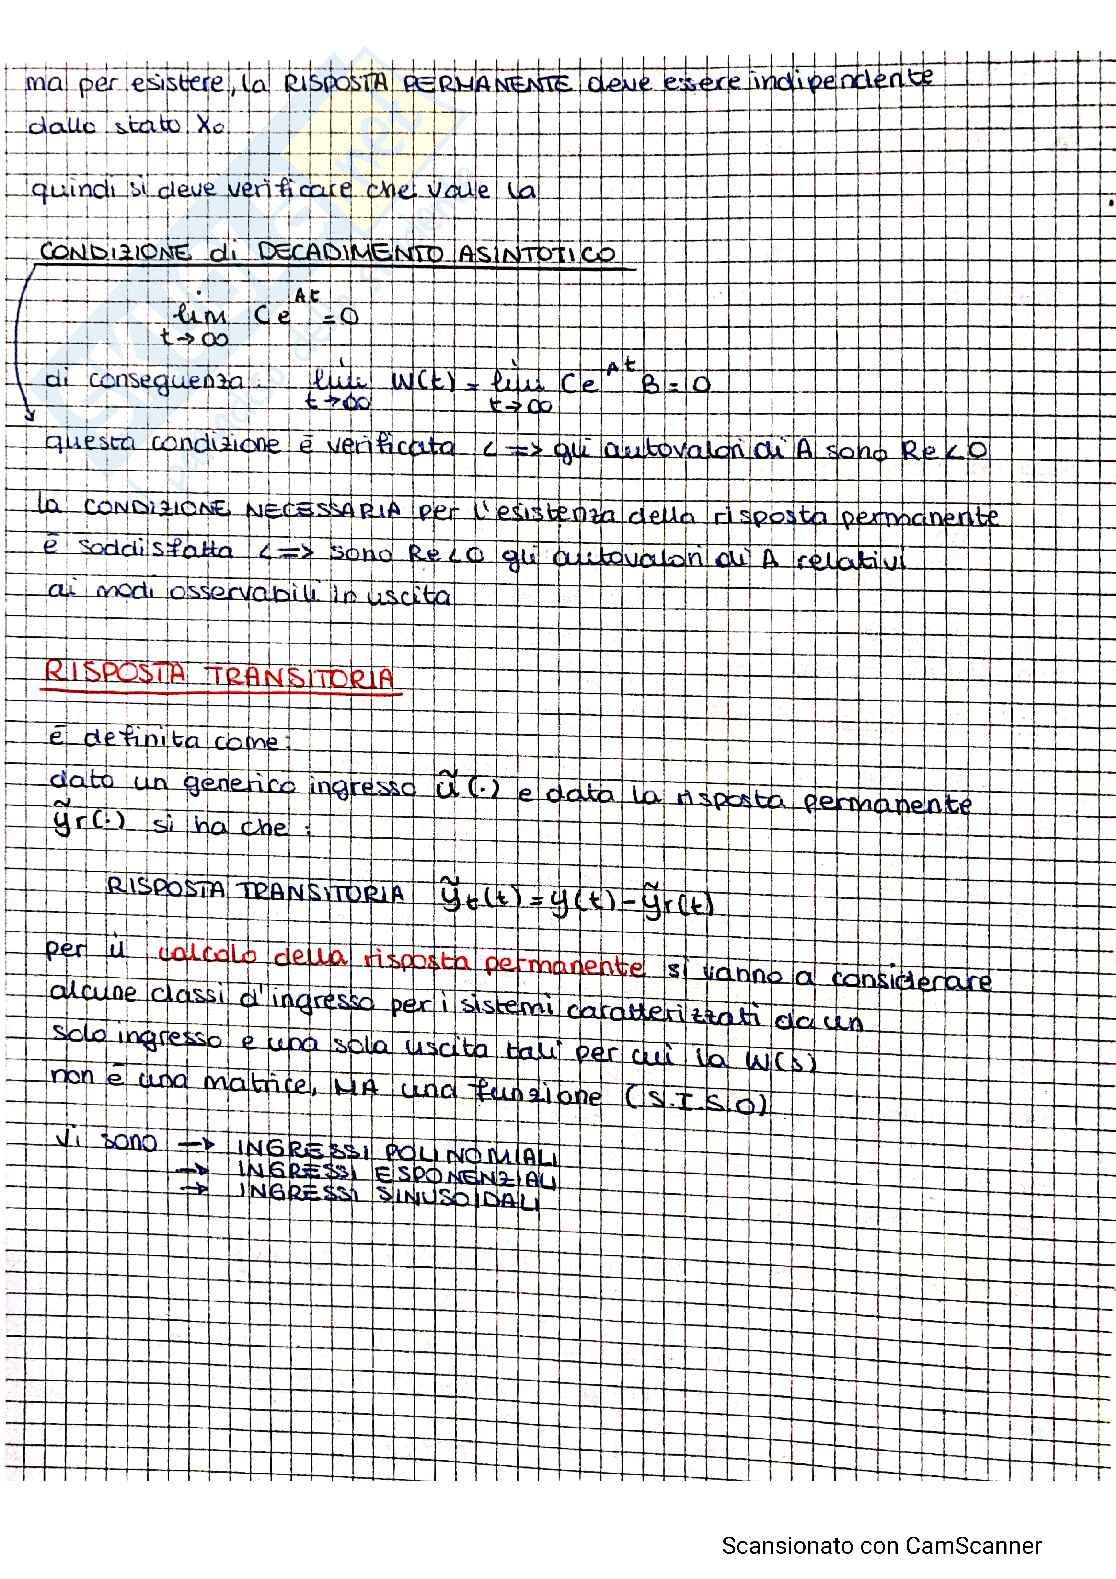 ma per esistere, la RISPOSTA PERMANENTE deve essere indipendente
dallo stato X₀
quindi si deve verificare che vale la
CONDIZIONE di DECADIMENTO ASINTOTICO
lim Ce^At = 0
t→∞
di conseguenza lim W(t) = lim Ce^At B = 0
t→∞ t→∞
questa condizione ē verificata <=> gli autovalori di A sono Re<0
la CONDIZIONE NECESSARIA per l'esistenza della risposta permanente
ē soddisfatta <=> sono Re<0 gli autovalori di A relativi
ai modi osservabili in uscita
RISPOSTA TRANSITORIA
ē definita come:
dato un generico ingresso ũ(·) e data la risposta permanente
ỹr(·) si ha che:
RISPOSTA TRANSITORIA ỹt(t) = y(t) - ỹr(t)
per il calcolo della risposta permanente si vanno a considerare
alcune classi d'ingresso per i sistemi caratterizzati da un
solo ingresso e una sola uscita tali per cui la W(s)
non ē una matrice, MA una funzione (S.I.S.O)
Vi sono → INGRESSI POLINOMIALI
→ INGRESSI ESPONENZIALI
→ INGRESSI SINUSOIDALI
Scansionato con CamScanner